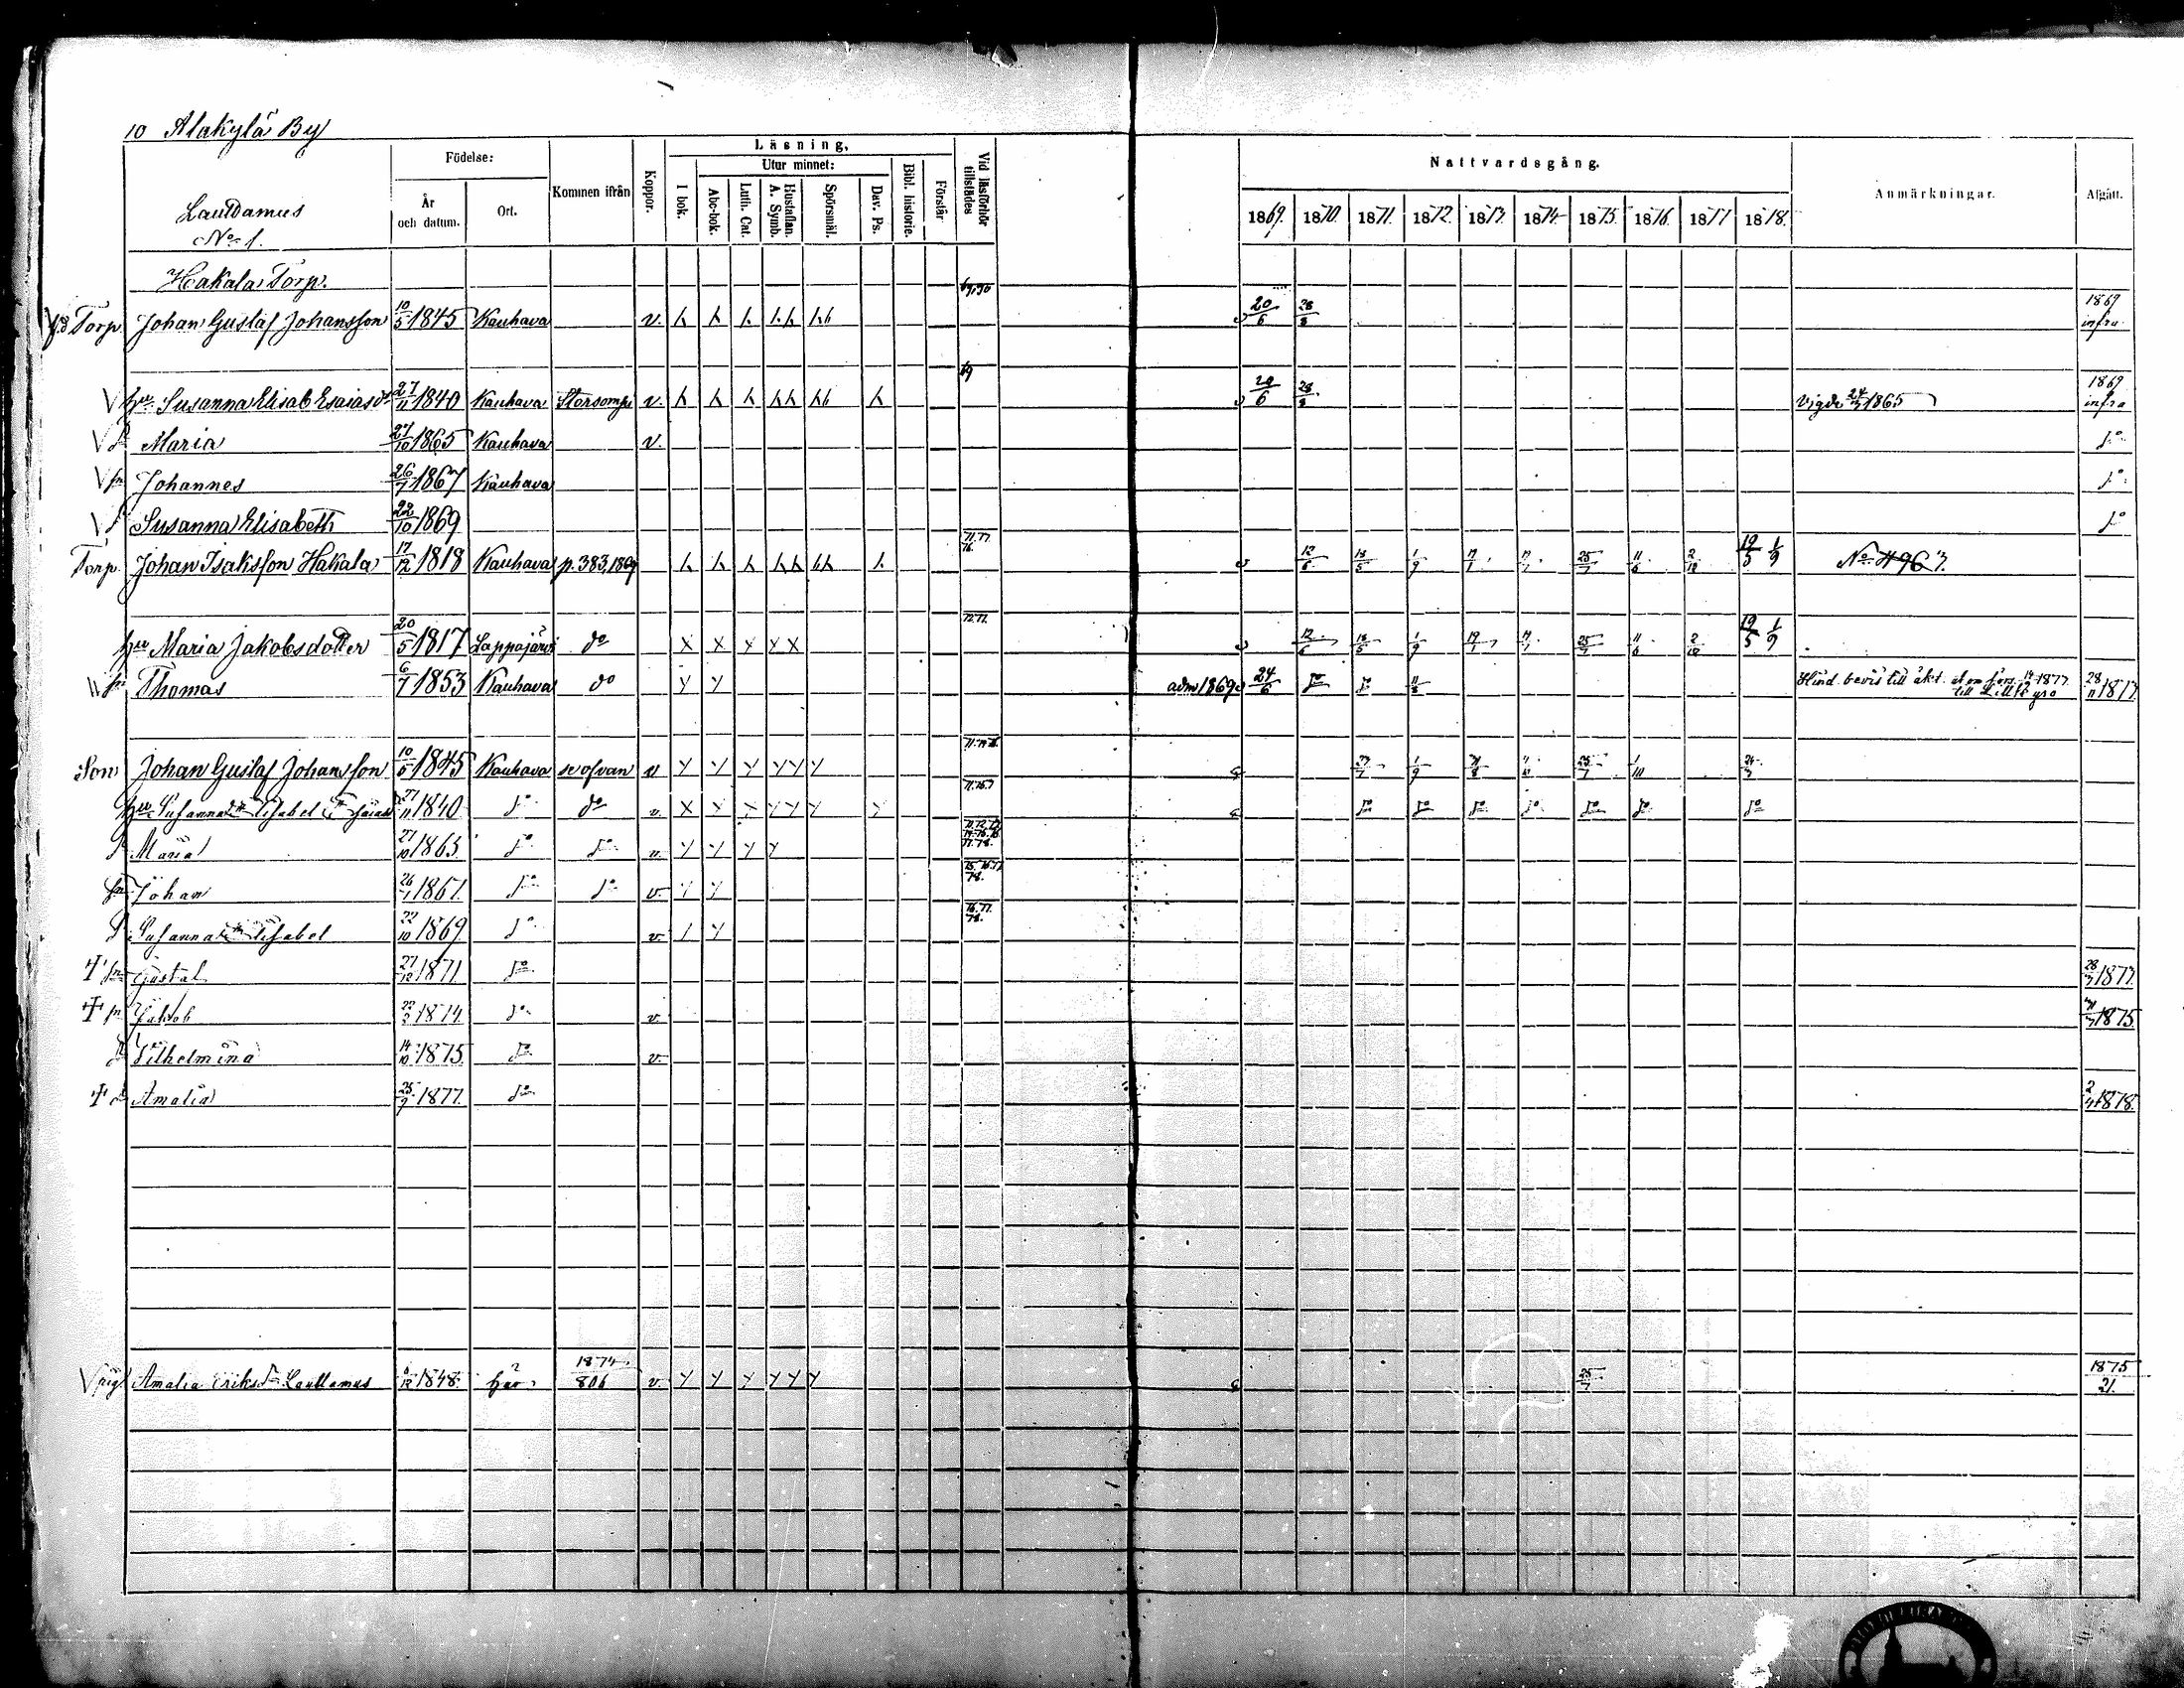 10 Alakylä By
Födelse: Läsning, Nattvardsgång.
Utur minnet:
År och datum. Ort. Kommen ifrån Koppor. I bok. Abc-bok. Luth. Cat. Hustaflan. A. Symb. Spörsmål. Dav. Ps. Bibl. historie. Förstår Vid läsförhör tillstädes 1869. 1870. 1871. 1872. 1873. 1874. 1875. 1876. 1877 1878. Anmärkningar. Afgått.
Lauttamus
No 1.
Hakala Torp.
Torp. Johan Gustaf Johansson 10/5 1845 Kauhava v. 20/6 28/8 1869 infra
69
hu Susanna Elisab Esaiasdr 27/11 1840 Kauhava Storsompi v. 20/6 28/8 vigde 24/3 1865 1869 infra
d Maria 27/10 1865 Kauhava v. do
sn Johannes 26/7 1867 Kauhava do
d Susanna Elisabeth 22/10 1869 do
Torp. Johan Isaksson Hakala 17/12 1818 Kauhava p. 383, 1869 12/6 18/5 1/9 25/7 11/6 2/12 19/5 1/9 No
hu Maria Jakobsdotter 20/5 1817 Lappajärvi do 12/6 18/5 1/9 25/7 11/6 2/12 19/5 1/9
sn Thomas 6/7 1853 Kauhava do adm 1869 24/6 do do 11/8 Hind. bevis till äkt. 1877 till 28/11 1877.
Son Johan Gustaf Johansson 10/5 1845 Kauhava se ofvan v 27/7 1/9 25/7 1/10 24/3
hu Susanna Lisabet Esaiasd 27/11 1840 do do v. do do do do do do do
d Maria 27/10 1865. do do v.
sn Johan 26/7 1867. do do v.
d Susanna Lisabet 22/10 1869. do v.
sn Gustaf 27/12 1871. do 28/3 1877.
sn Jakob 22/2 1874. do v. 1875.
d Vilhelmina 14/10 1875. do v.
d Amalia 25/9 1877. do 2/4 1878.
pig. Amalia Eriksd. Lauttamus 12 1848. här 1874/806 v. 25/7 1875/21.